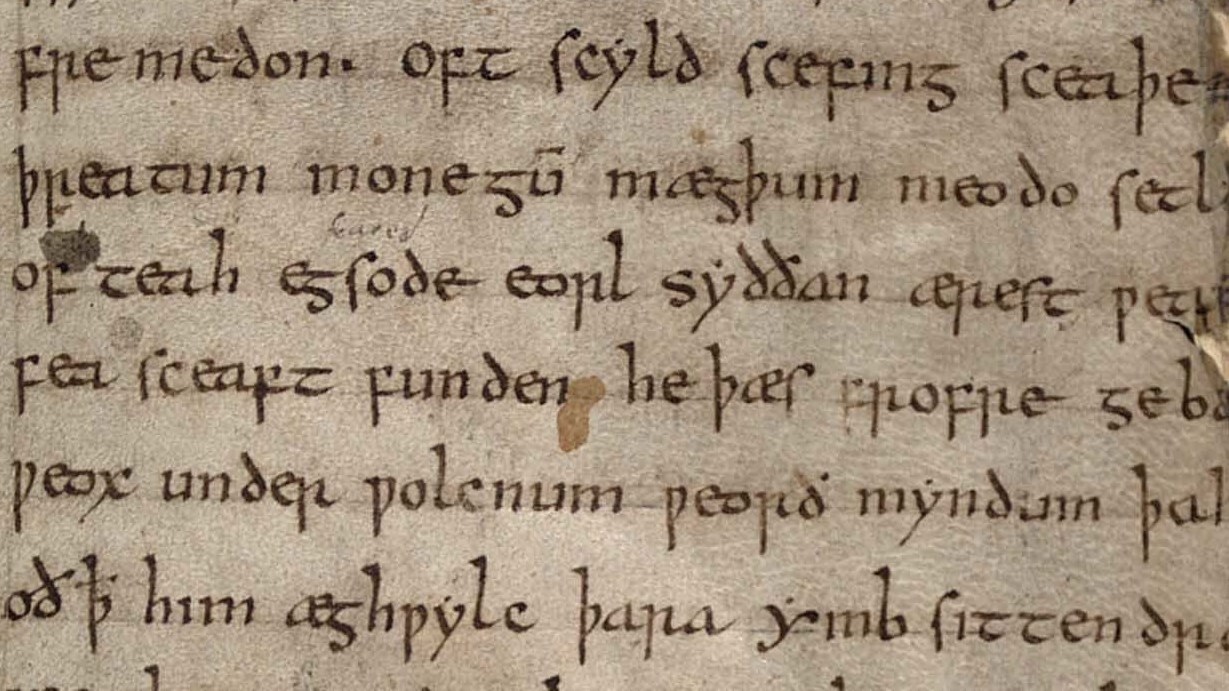 fremedon. Oft scyld scefing sceaþe
þreatum monegū mægþum meodo setl
of teah egsode eorl syððan ærest ƿear
fea sceaft funden he þæs frofre geba
ƿeox under ƿolcnum ƿeorð myndum þah
oð ꝥ him æghƿylc þara ymb sittendra